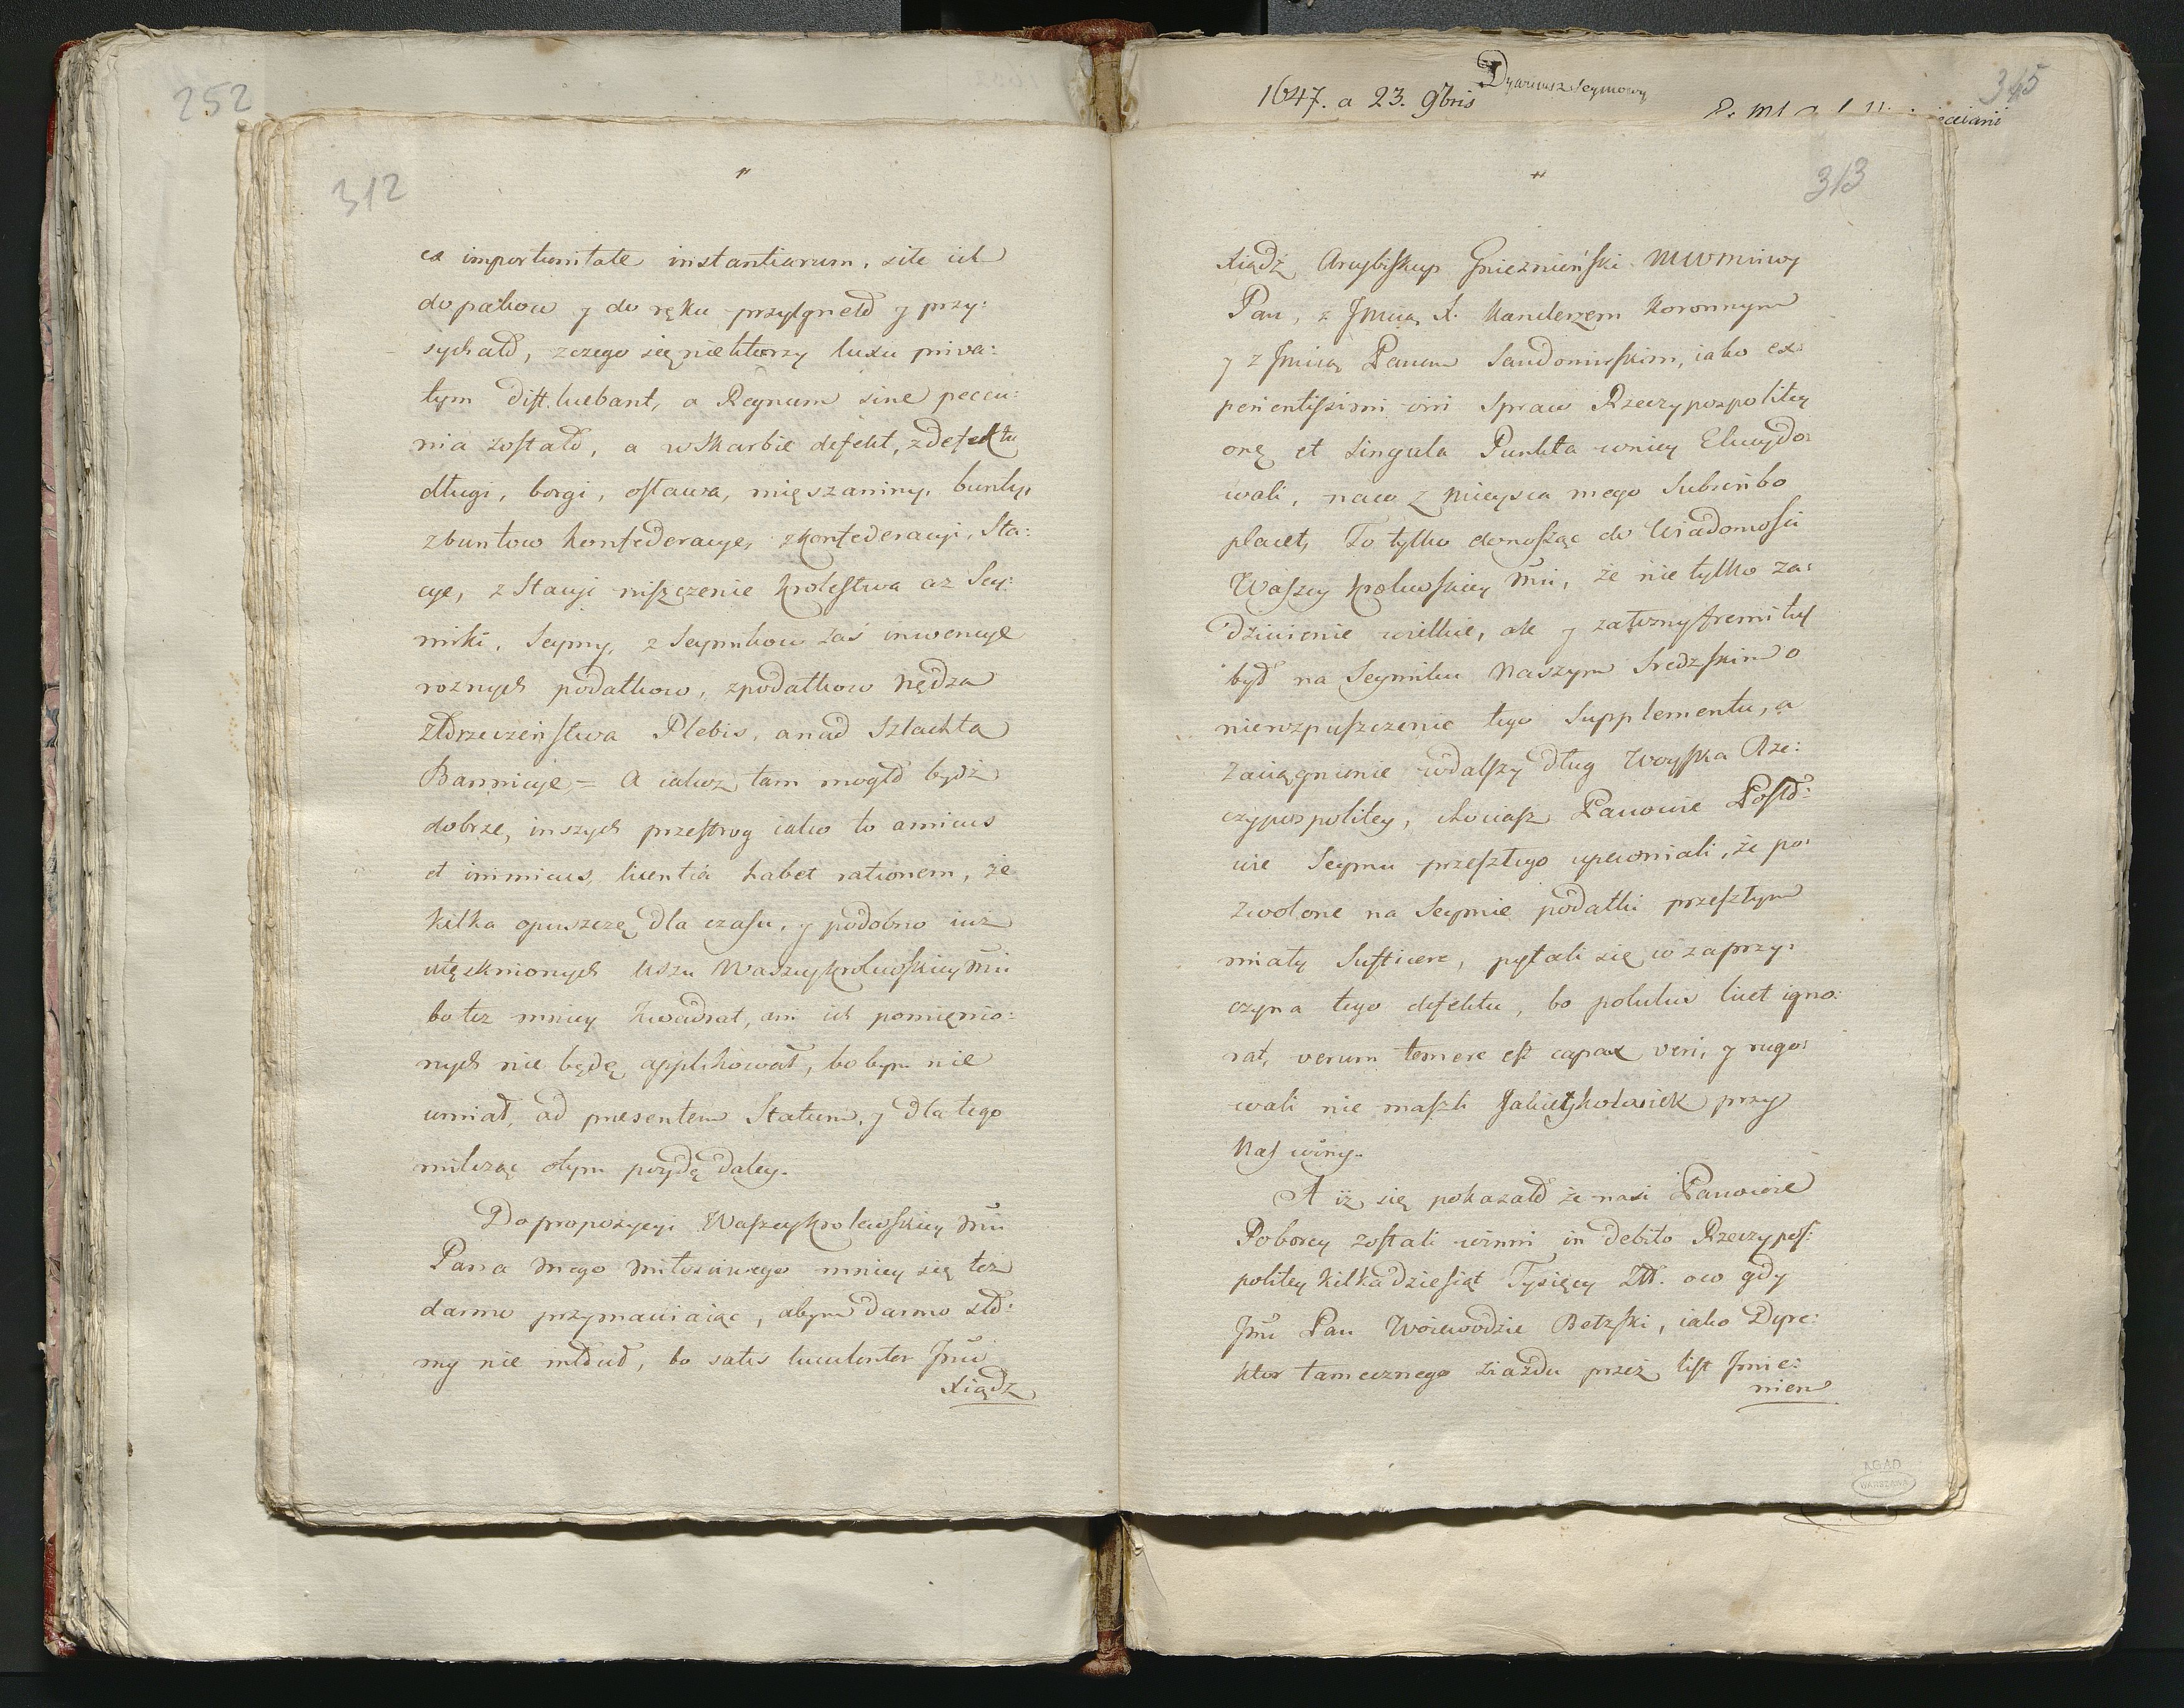 252
312
ex importunitate instantiarum, siłe ich
do pakow y do ręku przylgneło y przy:
sychało, z czego się niektorzy luxu priva:
tym diffluebant, a Regnum sine peccu:
nia zostało, a w Skarbie defekt, z defektu
długi, borgi, ostawa, mięszaniny, bunty,
z buntow konfederacye, z konfederacyi, Sta:
cye, z Stacyi niszczenie krolestwa az Sey:
miki, Seymy, z Seymikow zaś inwencye
roznych podatkow, z podatkow nędza
złorzeczeństwa Plebis, a nad Szlachta
Bannicye = A iakoż tam mogło bydź
dobrze, inszych przestrog iako to amicus
et inimicus, licentia habet rationem, że
kilka opuszczę dla czasu, y podobno iuż
utęsknionych uszu Waszey krolewskiey Mci
bo tez mniey kwadrat, ani ich pomienio:
nych nie będę applikował, bo bym nie
umiał, ad presentem Statum, y dla tego
milcząc otym poydę daley.
Do propozycyi Waszey krolewskiey Mci
Pana mego Miłosciwego mniey się tez
darmo przymawiaiąc, abym darmo sło:
my nie młócił, bo satis luculenter Jmci
Xiądz
1647. a 23. 9bris
Dyariusz Seymowy
345
313
Xiądz Arcybiskup Gnieznieński MWMciwy
Pan, z Jmcią X. Kanclerzem Koronnym
y z Jmcią Panem Sandomirskim, iako ex:
perientissimi viri Spraw Rzeczypospolitey
onę et singula Punkta w niey Elucydo:
wali, na co z mieysca mego Subscribo
placet, To tylko donosząc do Wiadomości
Waszey krolewskiey Mci, że nie tylko za:
dziwienie wielkie, ale y zatrzny fremitus
był na Seymiku Naszym Sredzskim o
nierozpuszczenie tego Supplementu, a
zaciągnienie w dalszy dług Woyska Rze:
czypospolitey, chociasz Panowie Posło:
wie Seymu przeszłego upewniali, że po:
zwolone na Seymie podatki przeszłym
miały Sufficere, pytali się co za przy:
czyna tego defektu, bo polulus licet igno:
rat, verum temere est capax veri, y rugo:
wali nie maszli Jakieykolwiek przy
Nas winy.
A iż się pokazało że nasi Panowie
Poborcy zostali winni in debito Rzeczypos:
politey kilkadziesiąt Tysięcy Zł. oco gdy
Jmć Pan Woiewodzic Bełzski, iako Dyre:
ktor tamecznego Ziazdu przez list Jmie:
niem
AGAD
WARSZAWA